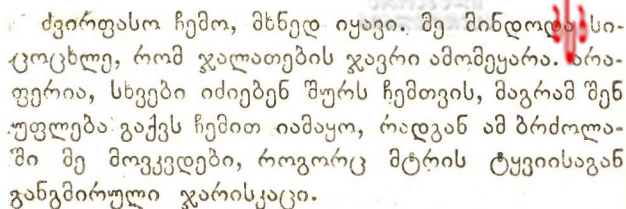 ძვირფასო ჩემო, მხნედ იყავი. მე მინდოდა სი-
ცოცხლე, რომ ჯალათების ჯავრი ამომეყარა. არა-
ფერია, სხვები იძიებენ შურს ჩემთვის, მაგრამ შენ
უფლება გაქვს ჩემით იამაყო, რადგან ამ ბრძოლა-
ში მე მოვკვდები, როგორც მტრის ტყვიისაგან
განგმირული ჯარისკაცი.